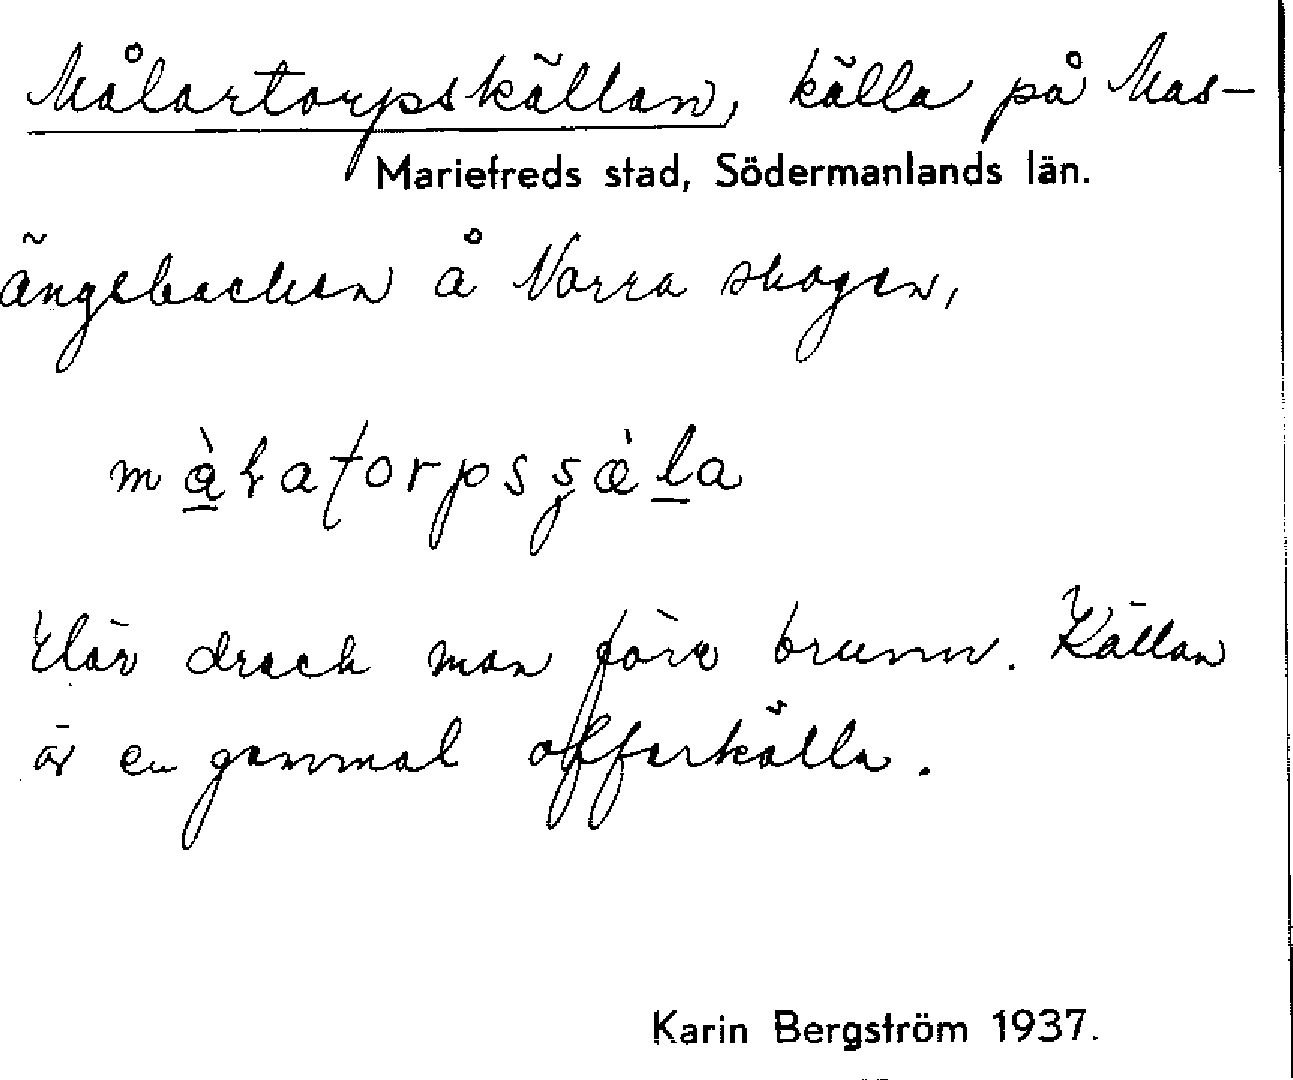 Målartorpskällan, källa på Mas-
Mariefreds stad, Södermanlands län.
ängsbacken å Norra skogen,
Här drack man förr brunn. Källan
är en gammal offerkälla.
Karin Bergström 1937.